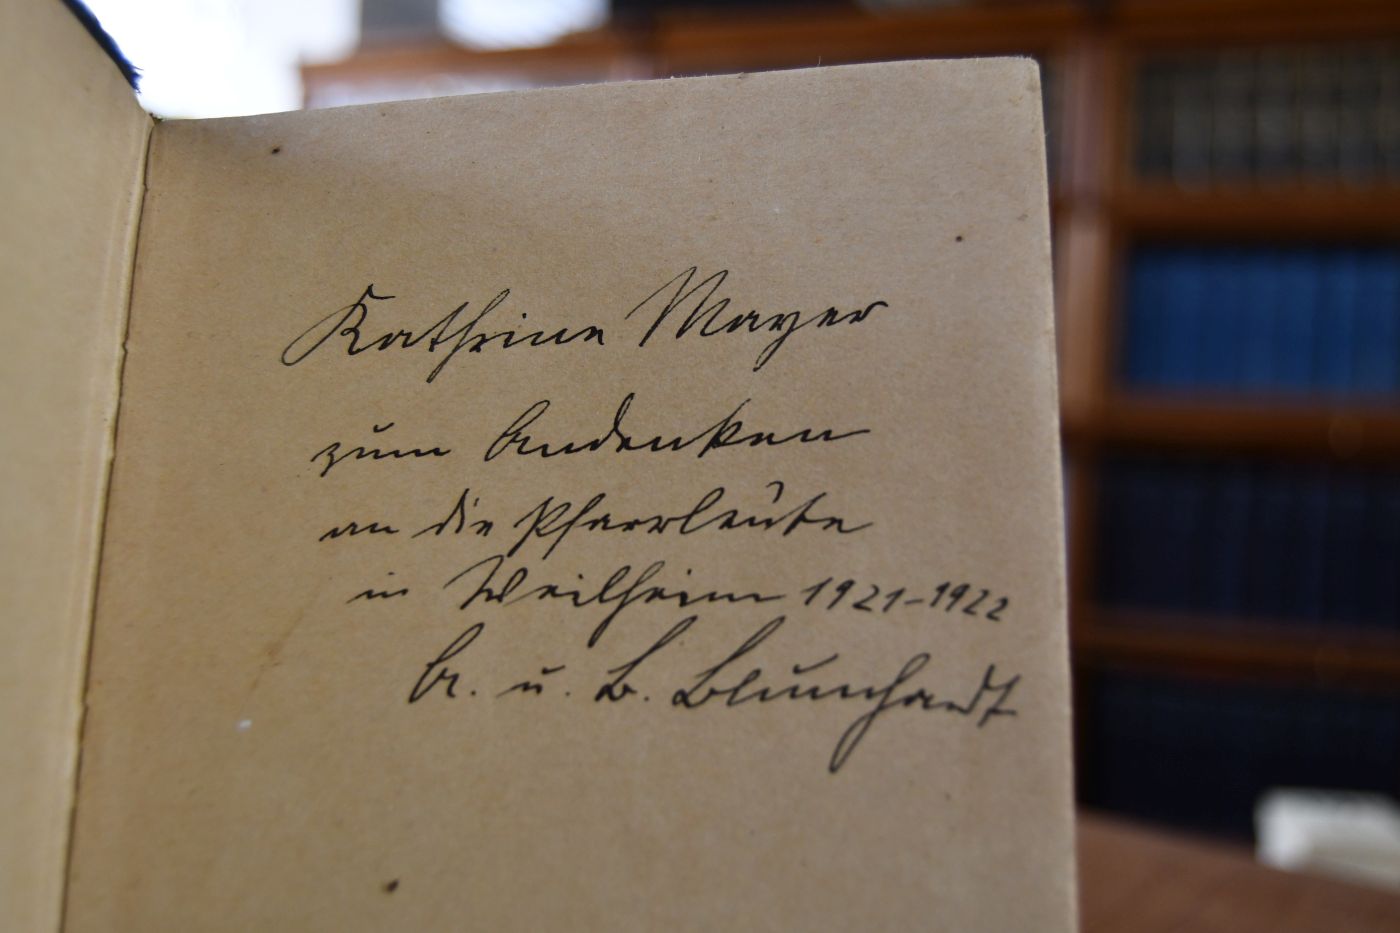 Kathrine Mayer
zum Andenken
an die Pfarrleute
in Weilheim 1921-1922
A. u. B. Blumhardt